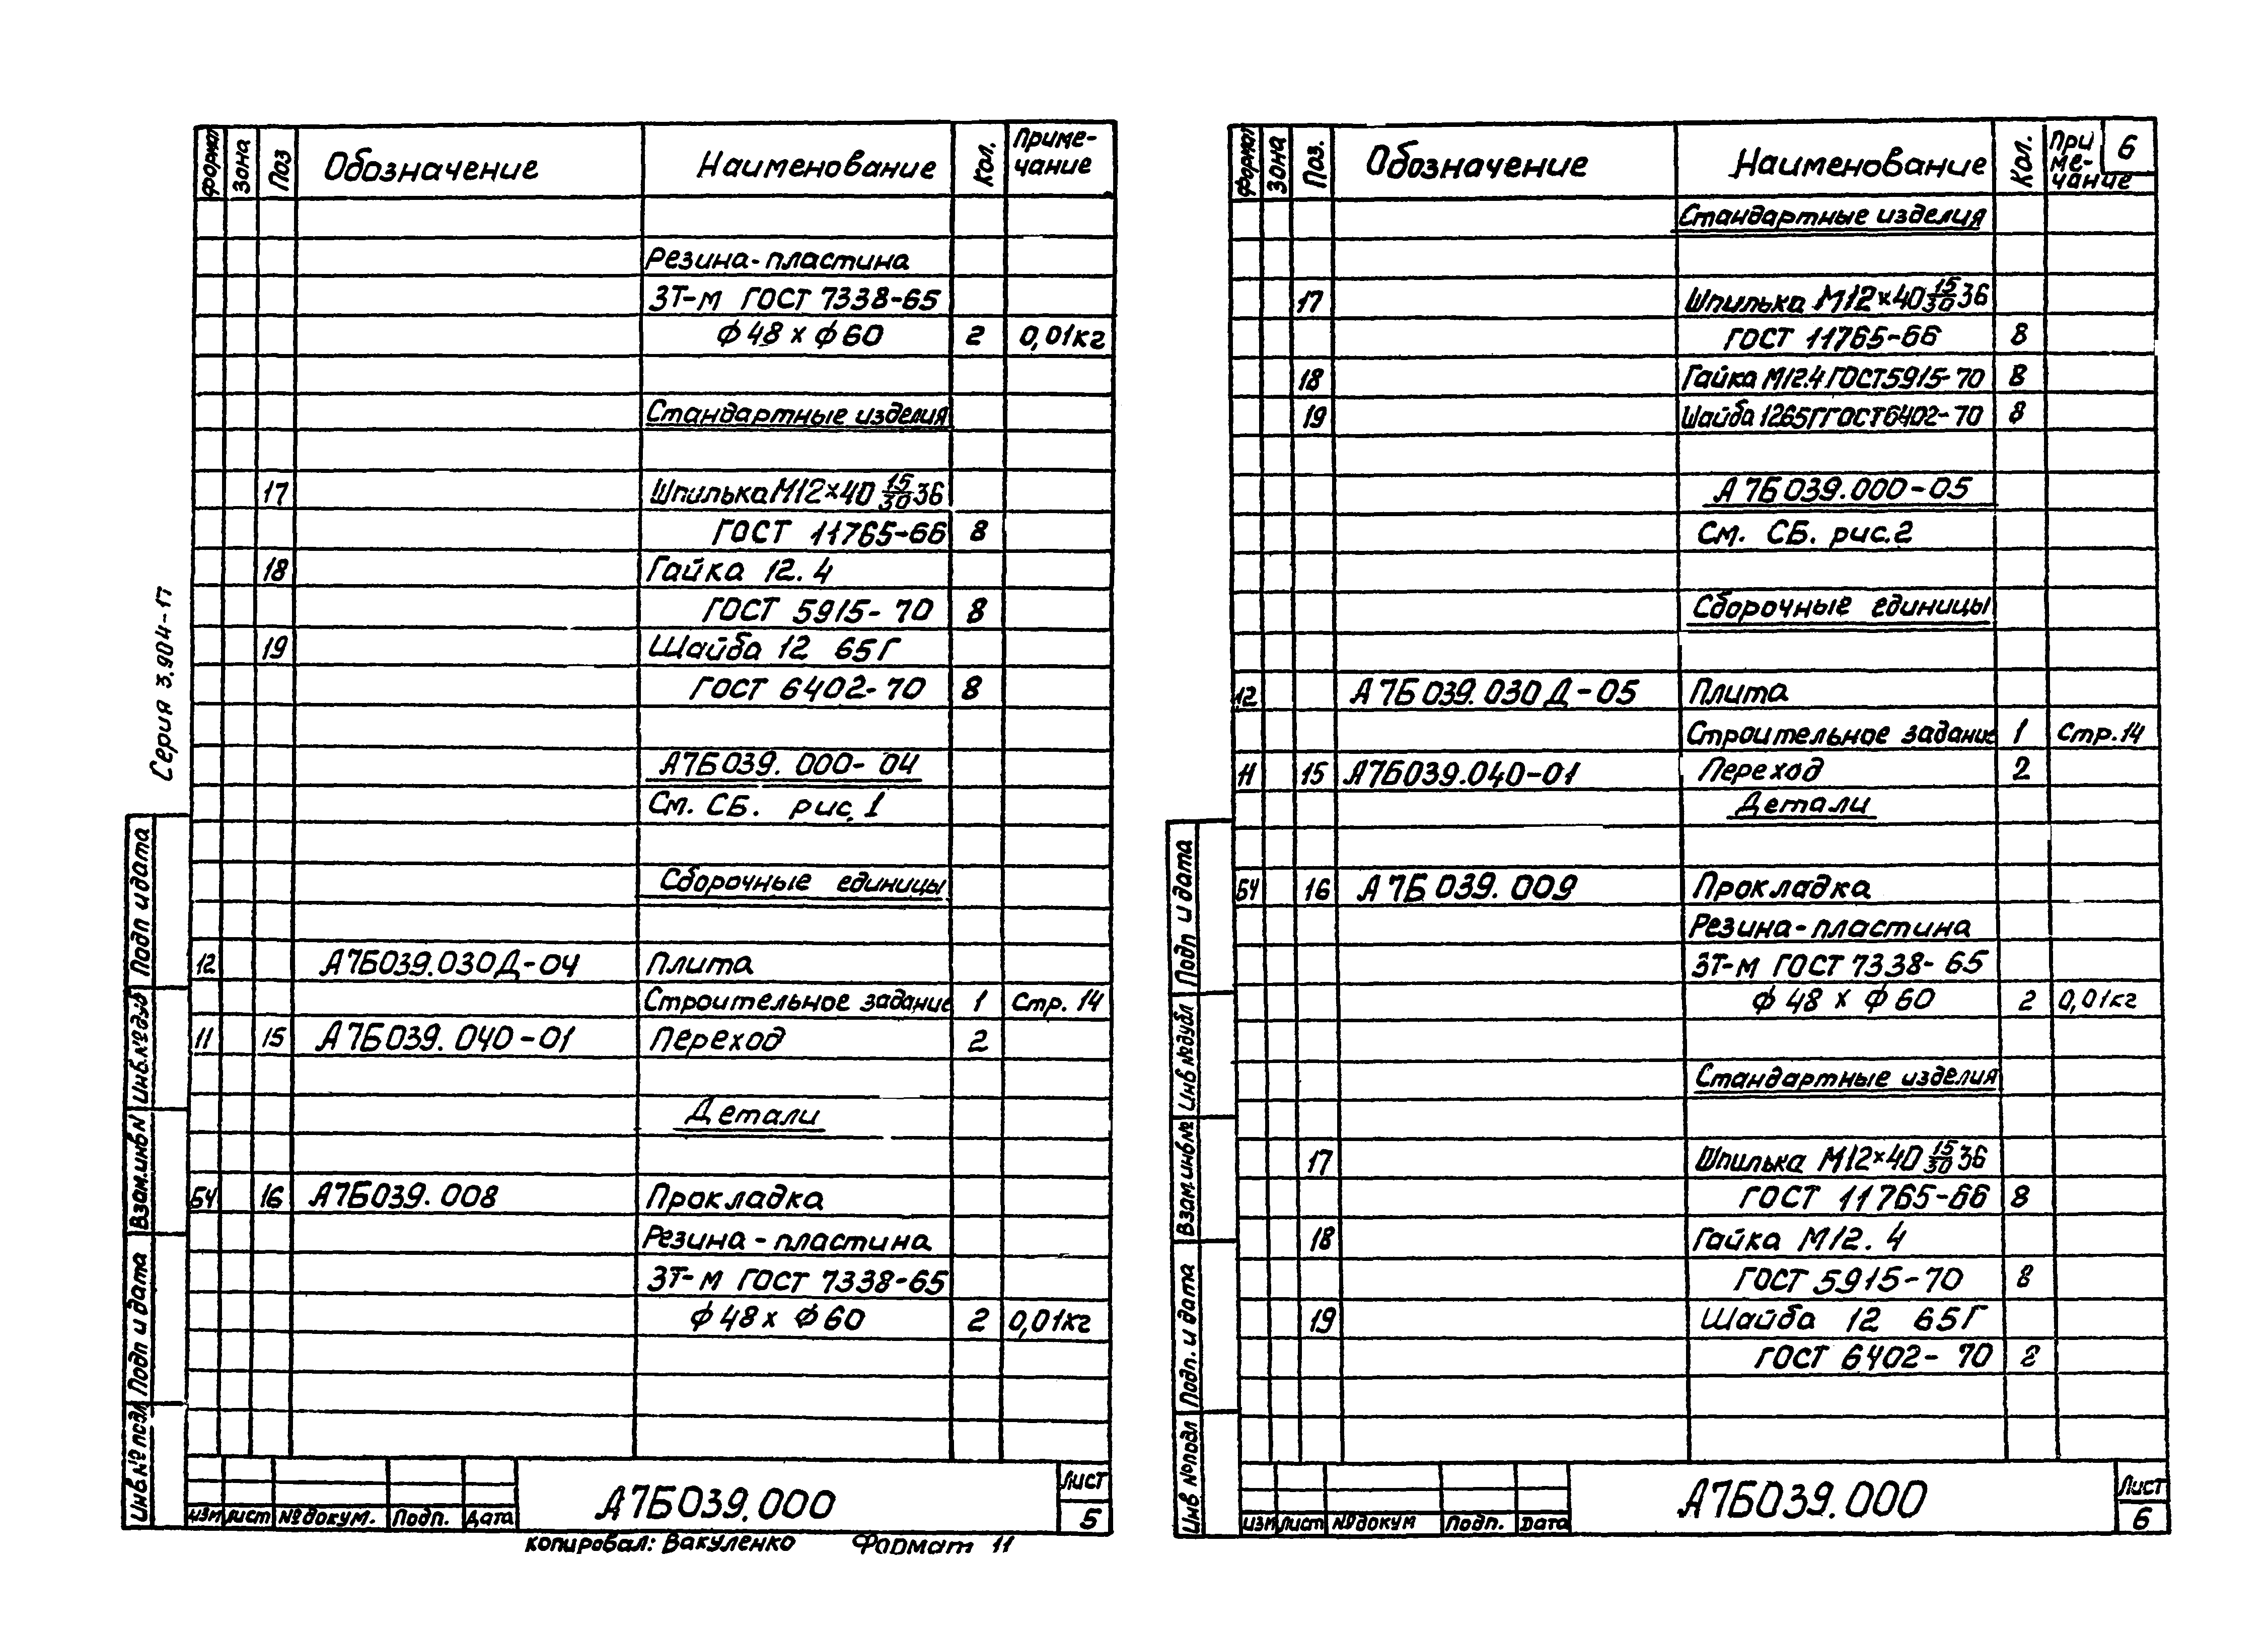 Серия 3.904-17
Формат Зона Поз Обозначение Наименование Кол. Приме-
чание
Резина-пластина
3Т-м ГОСТ 7338-65
ф48 х ф60 2 0,01кг
Стандартные изделия
17 Шпилька М12×40 15/30 36
ГОСТ 11765-66 8
18 Гайка 12.4
ГОСТ 5915-70 8
19 Шайба 12 65Г
ГОСТ 6402-70 8
А7Б039.000-04
См. СБ. рис. 1
Сборочные единицы
12 А7Б039.030Д-04 Плита
Строительное задание 1 Стр. 14
11 15 А7Б039.040-01 Переход 2
Детали
БЧ 16 А7Б039.008 Прокладка
Резина-пластина
3Т-м ГОСТ 7338-65
ф48 х ф60 2 0,01кг
Подп и дата
Инв.№дуб
Взам.инв№
Подп и дата
Инв№подл
Изм Лист №докум. Подп. Дата
А7Б039.000
Лист
5
копировал: Вакуленко Формат 11
Формат Зона Поз. Обозначение Наименование Кол. При
ме-
чание
6
Стандартные изделия
17 Шпилька М12×40 15/30 36
ГОСТ 11765-66 8
18 Гайка М12.4 ГОСТ5915-70 8
19 Шайба 12 65Г ГОСТ6402-70 8
А7Б039.000-05
См. СБ. рис.2
Сборочные единицы
12 А7Б039.030Д-05 Плита
Строительное задание 1 Стр.14
11 15 А7Б039.040-01 Переход 2
Детали
БЧ 16 А7Б039.009 Прокладка
Резина-пластина
3Т-м ГОСТ 7338-65
ф48 х ф60 2 0,01кг
Стандартные изделия
17 Шпилька М12×40 15/30 36
ГОСТ 11765-66 8
18 Гайка М12.4
ГОСТ 5915-70 8
19 Шайба 12 65Г
ГОСТ 6402-70 8
Подп и дата
Инв №дубл
Взам.инв№
Подп. и дата
Инв №подл
Изм Лист №докум Подп. Дата
А7Б039.000
Лист
6